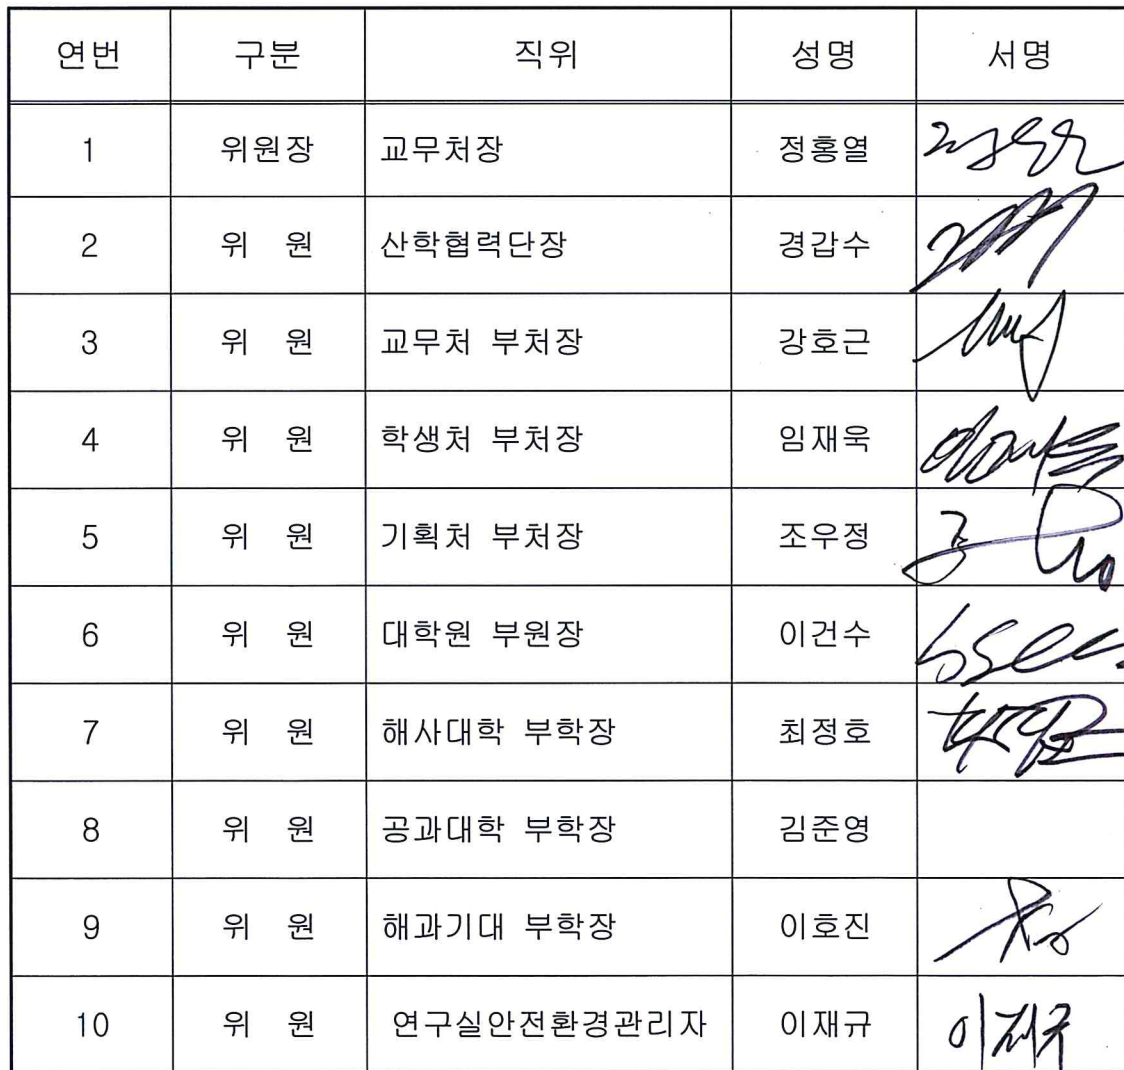 연번 구분 직위 성명 서명
1 위원장 교무처장 정홍열
2 위 원 산학협력단장 경갑수
3 위 원 교무처 부처장 강호근
4 위 원 학생처 부처장 임재욱
5 위 원 기획처 부처장 조우정
6 위 원 대학원 부원장 이건수
7 위 원 해사대학 부학장 최정호
8 위 원 공과대학 부학장 김준영
9 위 원 해과기대 부학장 이호진
10 위 원 연구실안전환경관리자 이재규 이재규